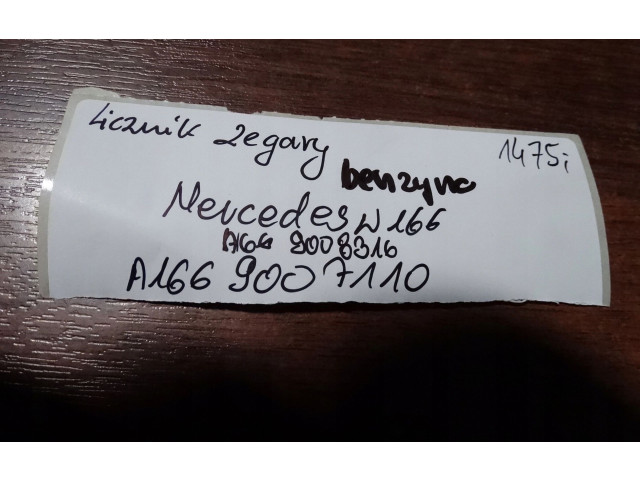 Licznik zegary 1475i
benzyna
Mercedes W166
A166 9008316
A166 900 7110